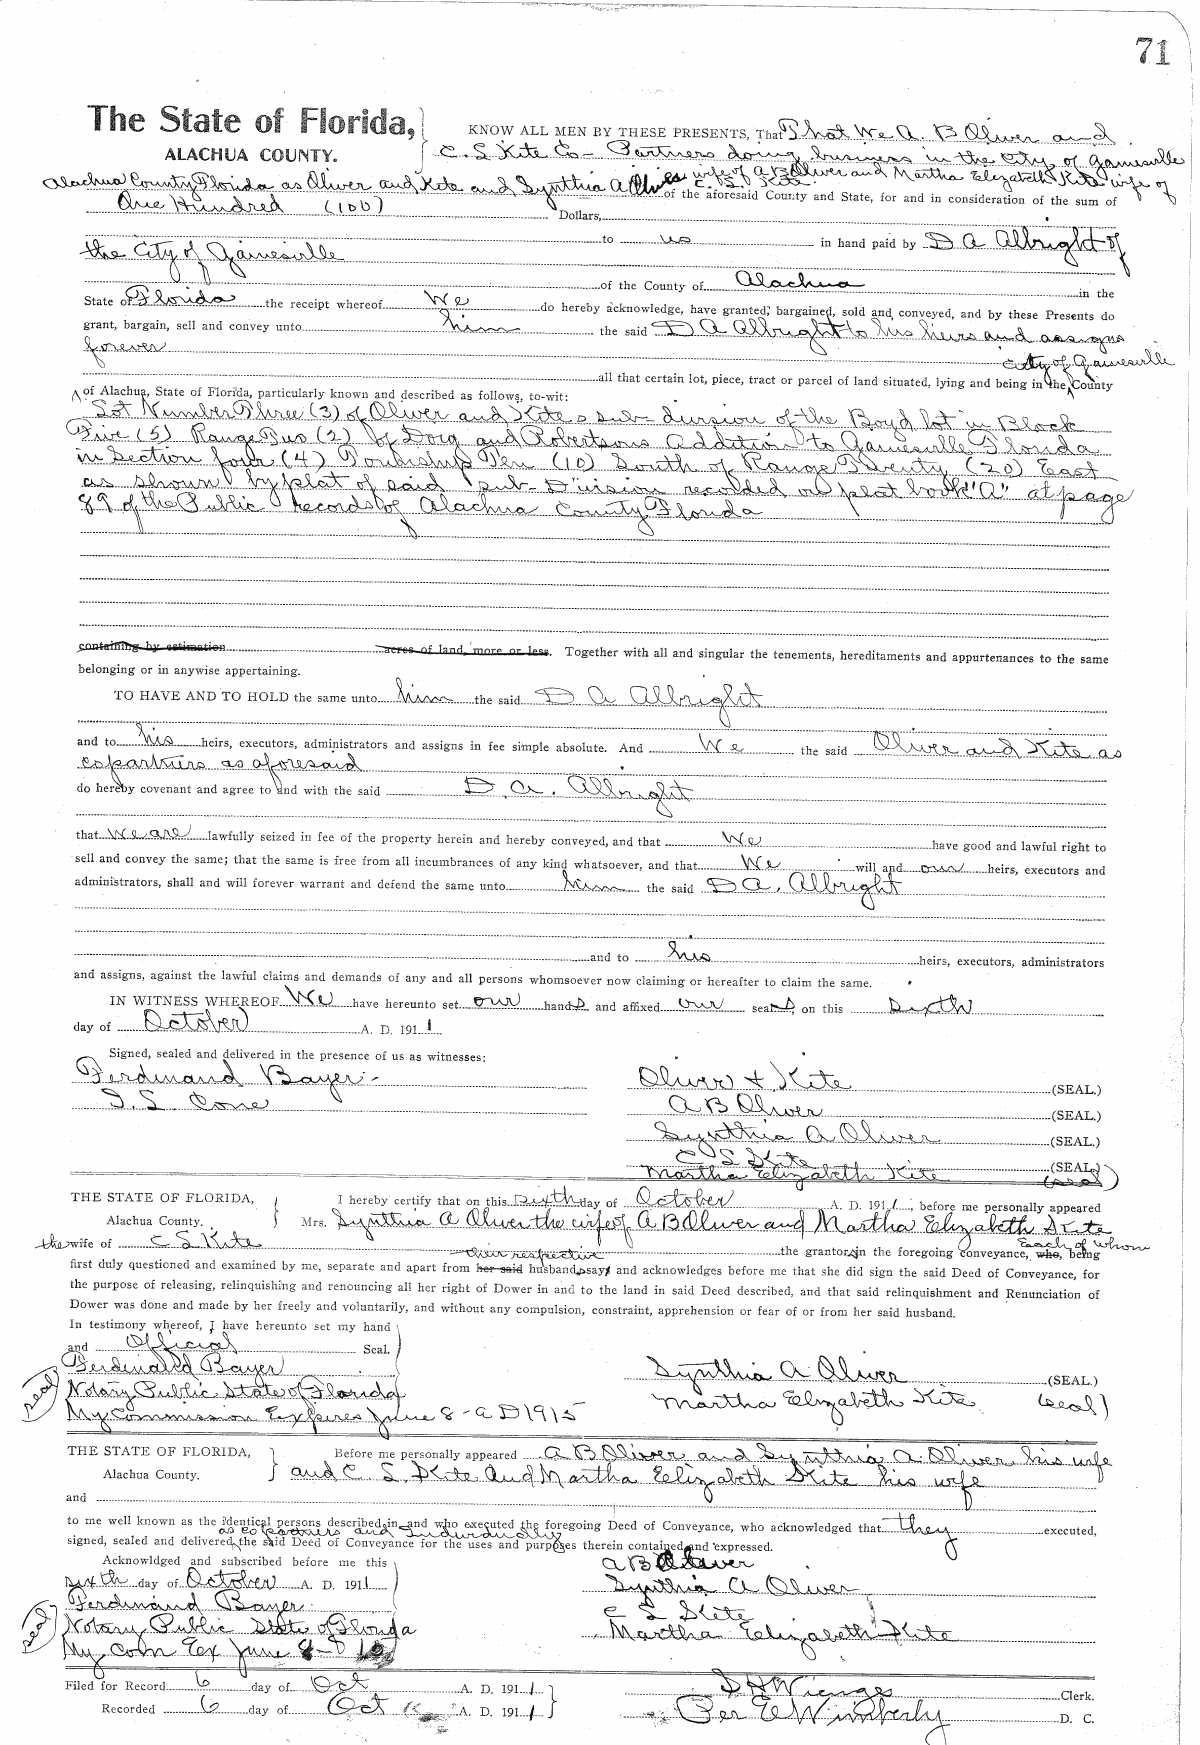 71
The State of Florida,
ALACHUA COUNTY.
KNOW ALL MEN BY THESE PRESENTS, That That We A. B Oliver and
C. S Kite Co- Partners doing business in the City of Gainesville
Alachua County Florida as Oliver and Kite and Synthia A Oliver wife of A B Oliver and Martha Elizabeth Kite wife of
C. S. Kite of the aforesaid County and State, for and in consideration of the sum of
One Hundred (100) Dollars,
to us in hand paid by D A Albright of
the City of Gainesville
of the County of Alachua in the
State of Florida the receipt whereof We do hereby acknowledge, have granted, bargained, sold and conveyed, and by these Presents do
grant, bargain, sell and convey unto him the said D A Albright to his heirs and assigns
forever
City of Gainesville
all that certain lot, piece, tract or parcel of land situated, lying and being in the County
of Alachua, State of Florida, particularly known and described as follows, to-wit:
Lot Number Three (3) of Oliver and Kites sub-division of the Boyd lot in Block
Five (5) Range Two (2) of Doig and Robertsons Addition to Gainesville Florida
in Section four (4) Township Ten (10) South of Range Twenty (20) East
as shown by plat of said sub-Division recorded in plat book "A" at page
89 of the Public records of Alachua County Florida
containing by estimation acres of land, more or less. Together with all and singular the tenements, hereditaments and appurtenances to the same
belonging or in anywise appertaining.
TO HAVE AND TO HOLD the same unto him the said D A Albright
and to his heirs, executors, administrators and assigns in fee simple absolute. And We the said Oliver and Kite as
copartners as aforesaid
do hereby covenant and agree to and with the said D. A. Albright
that we are lawfully seized in fee of the property herein and hereby conveyed, and that We have good and lawful right to
sell and convey the same; that the same is free from all incumbrances of any kind whatsoever, and that We will and our heirs, executors and
administrators, shall and will forever warrant and defend the same unto him the said D A. Albright
and to his heirs, executors, administrators
and assigns, against the lawful claims and demands of any and all persons whomsoever now claiming or hereafter to claim the same.
IN WITNESS WHEREOF We have hereunto set our hands and affixed our seals on this sixth
day of October A. D. 1911
Signed, sealed and delivered in the presence of us as witnesses:
Ferdinand Bayer
I. S. Cone
Oliver & Kite (SEAL.)
A B Oliver (SEAL.)
Synthia A Oliver (SEAL.)
C S Kite (SEAL.)
Martha Elizabeth Kite (seal)
THE STATE OF FLORIDA,
Alachua County.
I hereby certify that on this sixth day of October A. D. 1911, before me personally appeared
Mrs. Synthia A Oliver the wife of A B Oliver and Martha Elizabeth Kite
Each of whom
the wife of C S Kite their respective the grantors in the foregoing conveyance, who, being
first duly questioned and examined by me, separate and apart from her said husbands says and acknowledges before me that she did sign the said Deed of Conveyance, for
the purpose of releasing, relinquishing and renouncing all her right of Dower in and to the land in said Deed described, and that said relinquishment and Renunciation of
Dower was done and made by her freely and voluntarily, and without any compulsion, constraint, apprehension or fear of or from her said husband.
In testimony whereof, I have hereunto set my hand
and Official Seal.
Ferdinand Bayer
(seal) Notary Public State of Florida
My Commission Expires June 8 - A D 1915
Synthia A Oliver (SEAL.)
Martha Elizabeth Kite (seal)
THE STATE OF FLORIDA,
Alachua County.
Before me personally appeared A B Oliver and Synthia A. Oliver his wife
and C. S. Kite and Martha Elizabeth Kite his wife
and
to me well known as the identical persons described in and who executed the foregoing Deed of Conveyance, who acknowledged that they executed,
as copartners and Individually
signed, sealed and delivered the said Deed of Conveyance for the uses and purposes therein contained and expressed.
Acknowldged and subscribed before me this
sixth day of October A. D. 1911
Ferdinand Bayer
(seal) Notary Public State of Florida
My Com Ex June 8-
A B Oliver
Synthia A Oliver
C S Kite
Martha Elizabeth Kite
Filed for Record 6 day of Oct A. D. 1911
Recorded 6 day of Oct A. D. 1911
S H Wienges Clerk.
Per E Wimberly D. C.